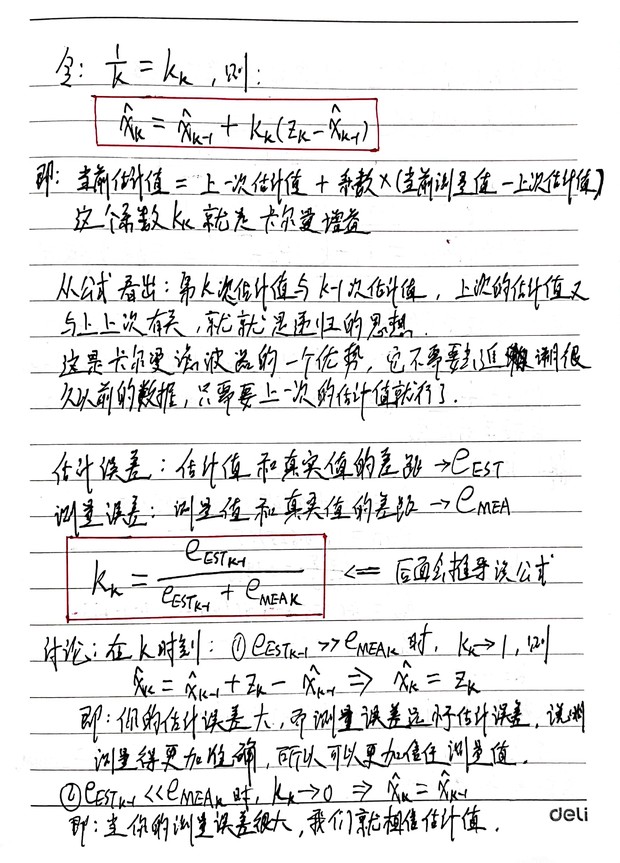 令: 1/k = kₖ, 则:
x̂ₖ = x̂ₖ₋₁ + kₖ(zₖ - x̂ₖ₋₁)
即: 当前估计值 = 上一次估计值 + 系数×(当前测量值 - 上次估计值)
这个系数kₖ就是卡尔曼增益
从公式看出: 第k次估计值与k-1次估计值, 上次的估计值又
与上上次有关, 就就是递归的思想.
这是卡尔曼滤波器的一个优势, 它不需要去追溯很
久以前的数据, 只需要上一次的估计值就行了.
估计误差: 估计值和真实值的差距 → e_EST
测量误差: 测量值和真实值的差距 → e_MEA
kₖ = e_ESTₖ₋₁ / (e_ESTₖ₋₁ + e_MEAₖ) <= 后面会推导该公式
讨论: 在k时刻: ① e_ESTₖ₋₁ >> e_MEAₖ 时, kₖ→1, 则
x̂ₖ = x̂ₖ₋₁ + zₖ - x̂ₖ₋₁ => x̂ₖ = zₖ
即: 你的估计误差大, 而测量误差远小于估计误差, 说明
测量得更加准确, 所以可以更加信任测量值.
② e_ESTₖ₋₁ << e_MEAₖ 时, kₖ→0 => x̂ₖ = x̂ₖ₋₁
即: 当你的测量误差很大, 我们就相信估计值.
deli